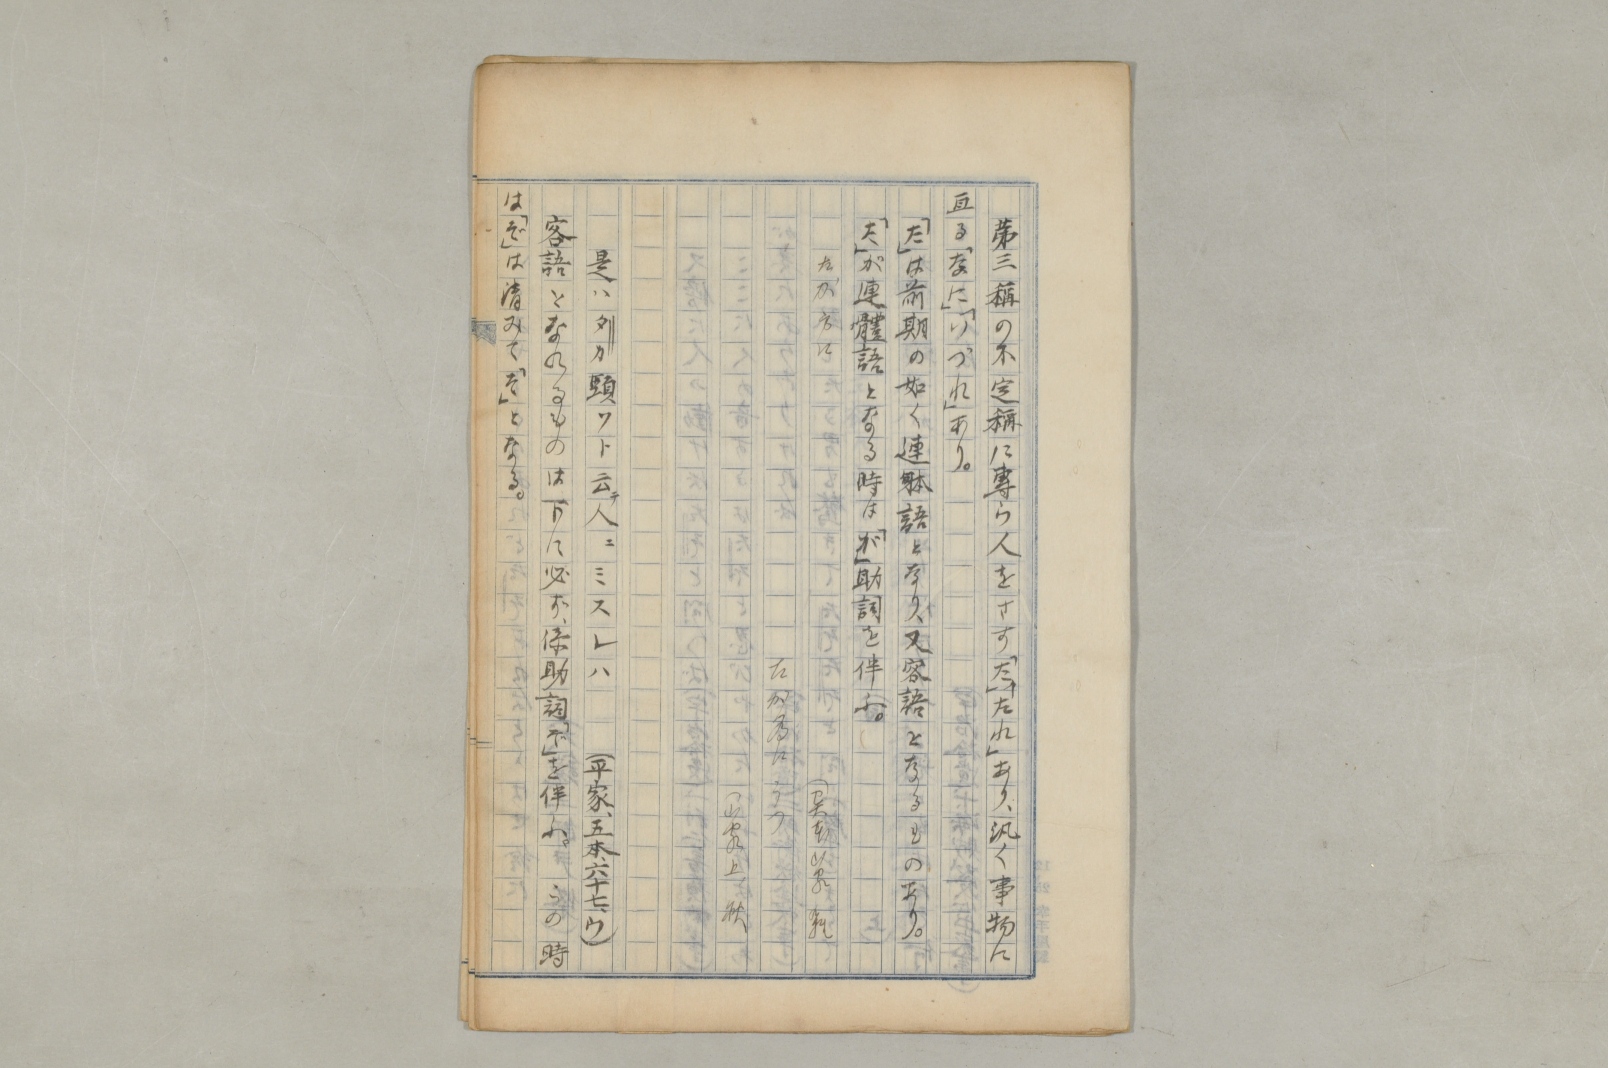 第三稱の不定稱に專ら人をさす「た」「たれ」あり、汎く事物に
亘る「なに」「いづれ」あり。
「た」は前期の如く連躰語となり、又客語となるものあり。
「た」が連體語となる時は「が」助詞を伴ふ。
たが方に
山家
たが為に
(山家上 秋
是ハタカ頸ソト云テ人ニミスレハ (平家、五本、六十七、ウ)
客語となれるものは下に必ず、係助詞「ぞ」を伴ふ。この時
は「ぞ」は清みて「そ」となる。